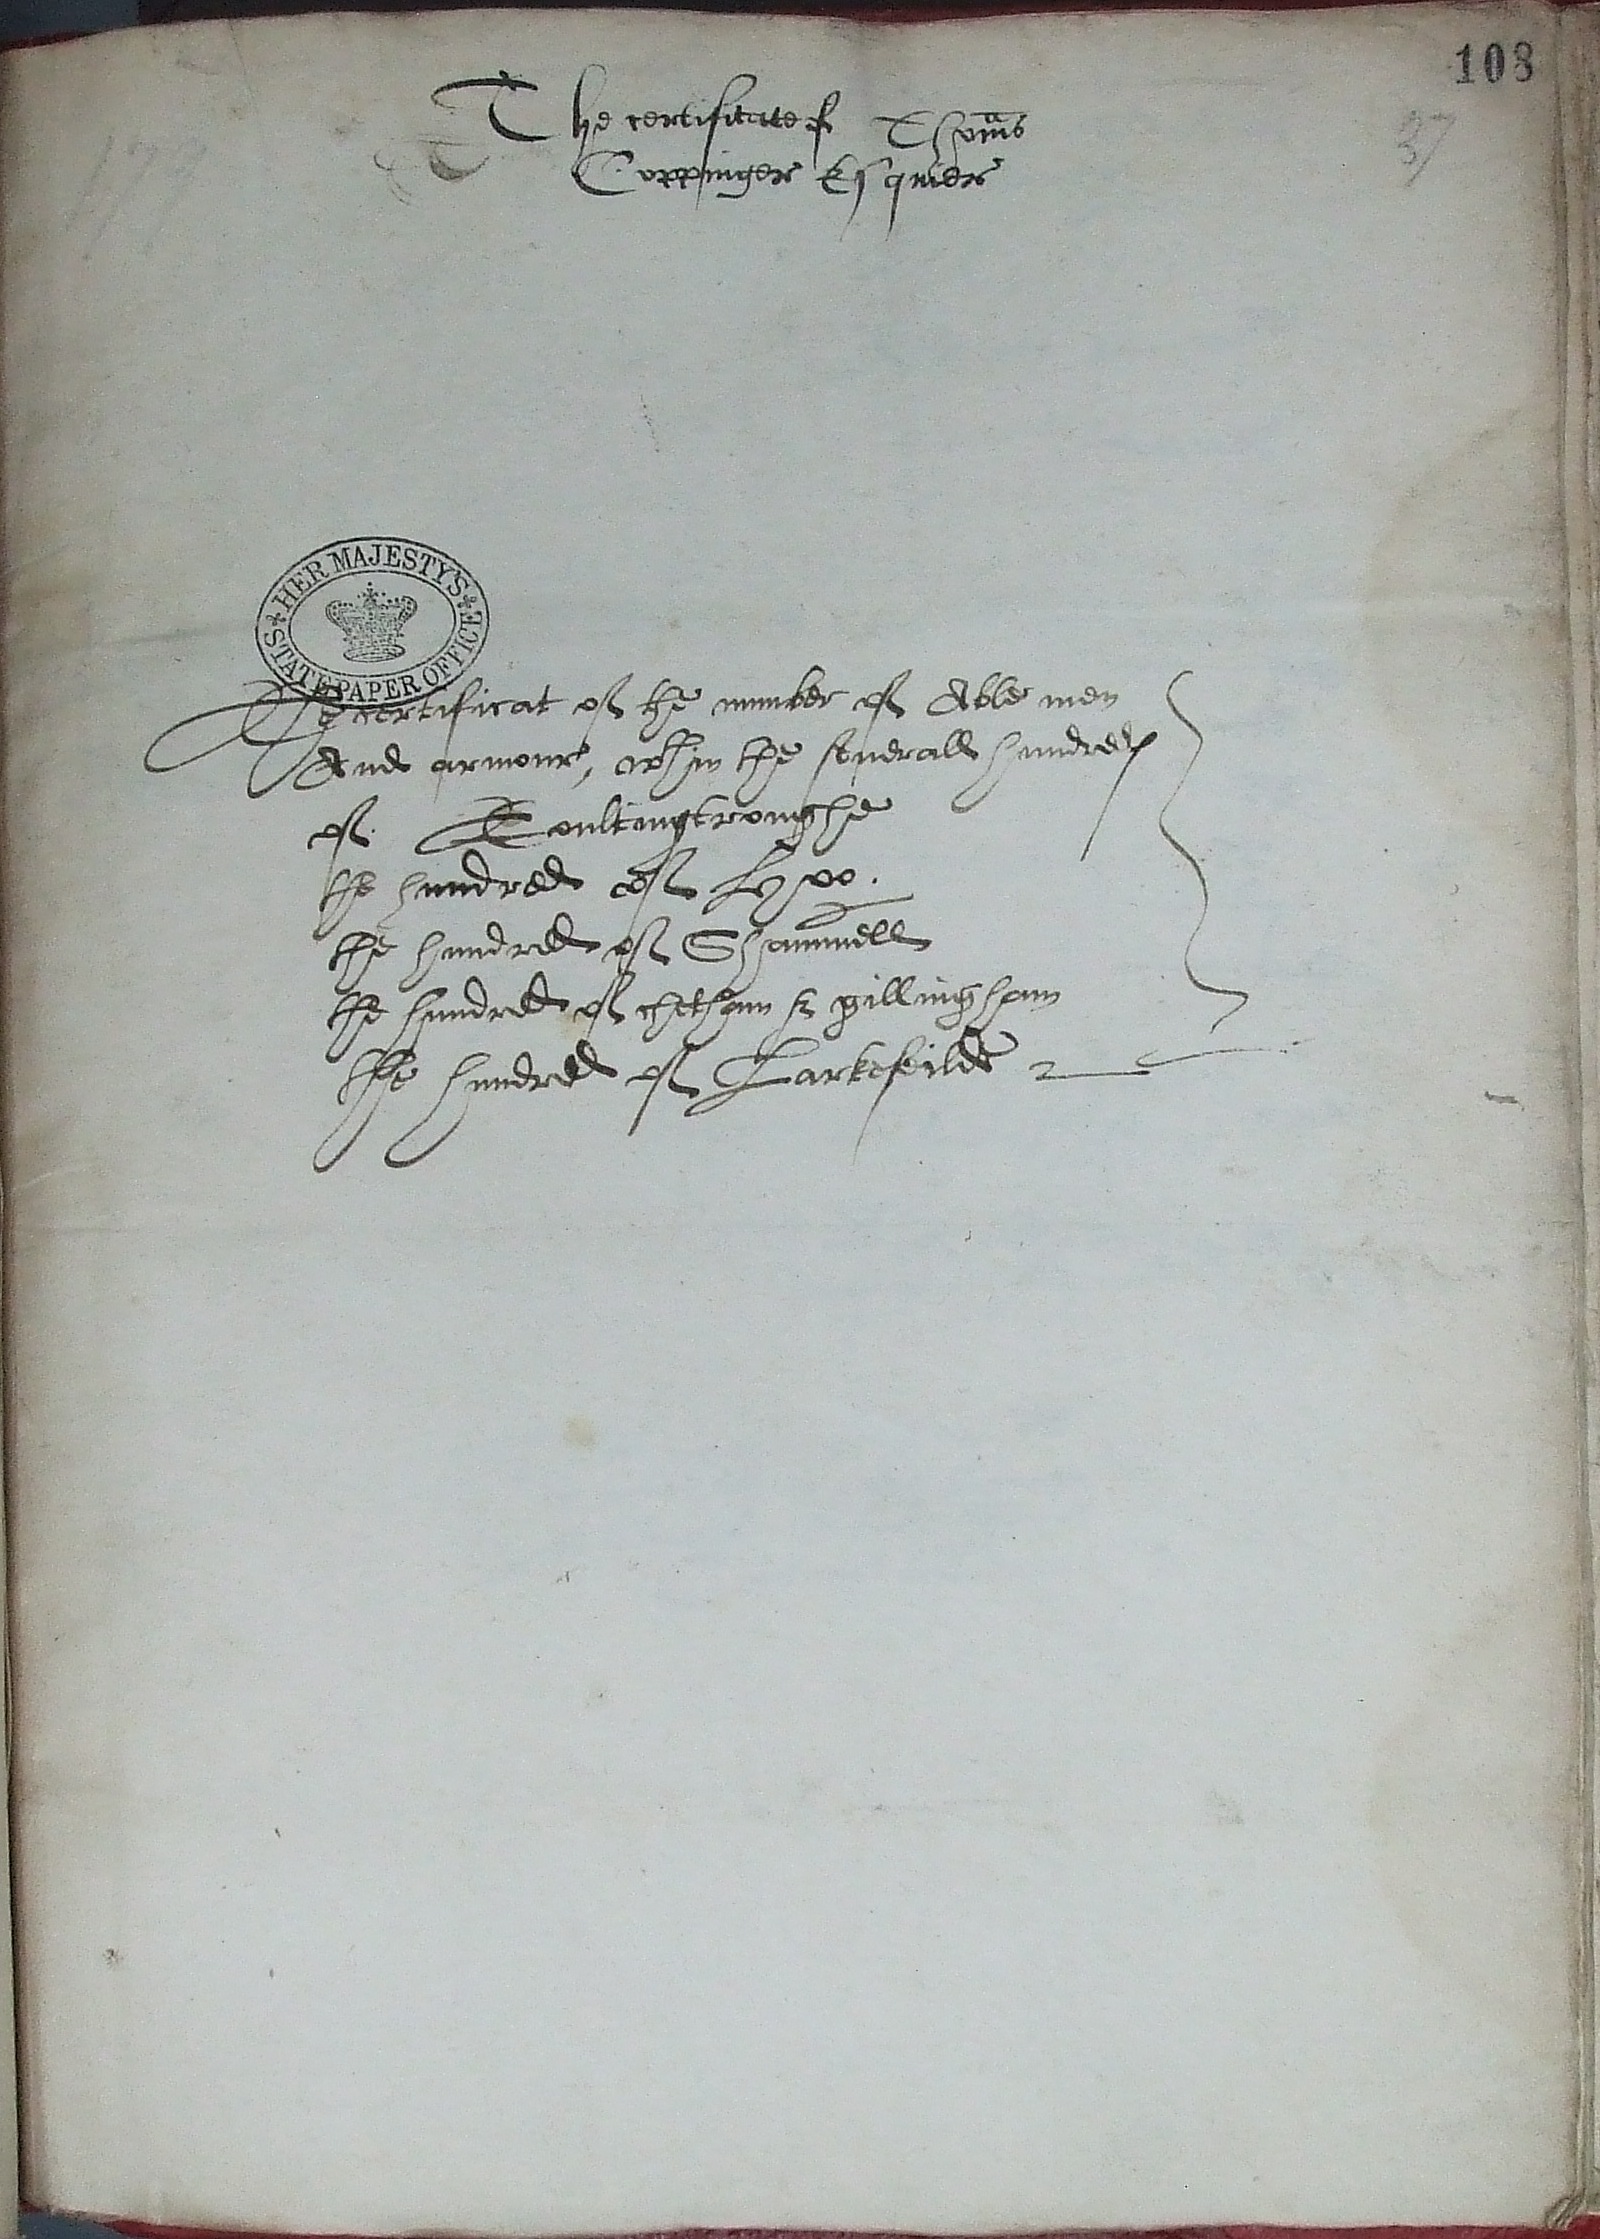 108
37
The certificate of Thomas
Coppinger Esquier
HER MAJESTY'S
STATE PAPER OFFICE
The certificat of the number of Able men
And armour, wthin the seuerall hundredes
of Toultingtroughe
the hundred of
the hundred of Shammell
the hundred of chetham & gillingham
The hundred of Larkefeilde